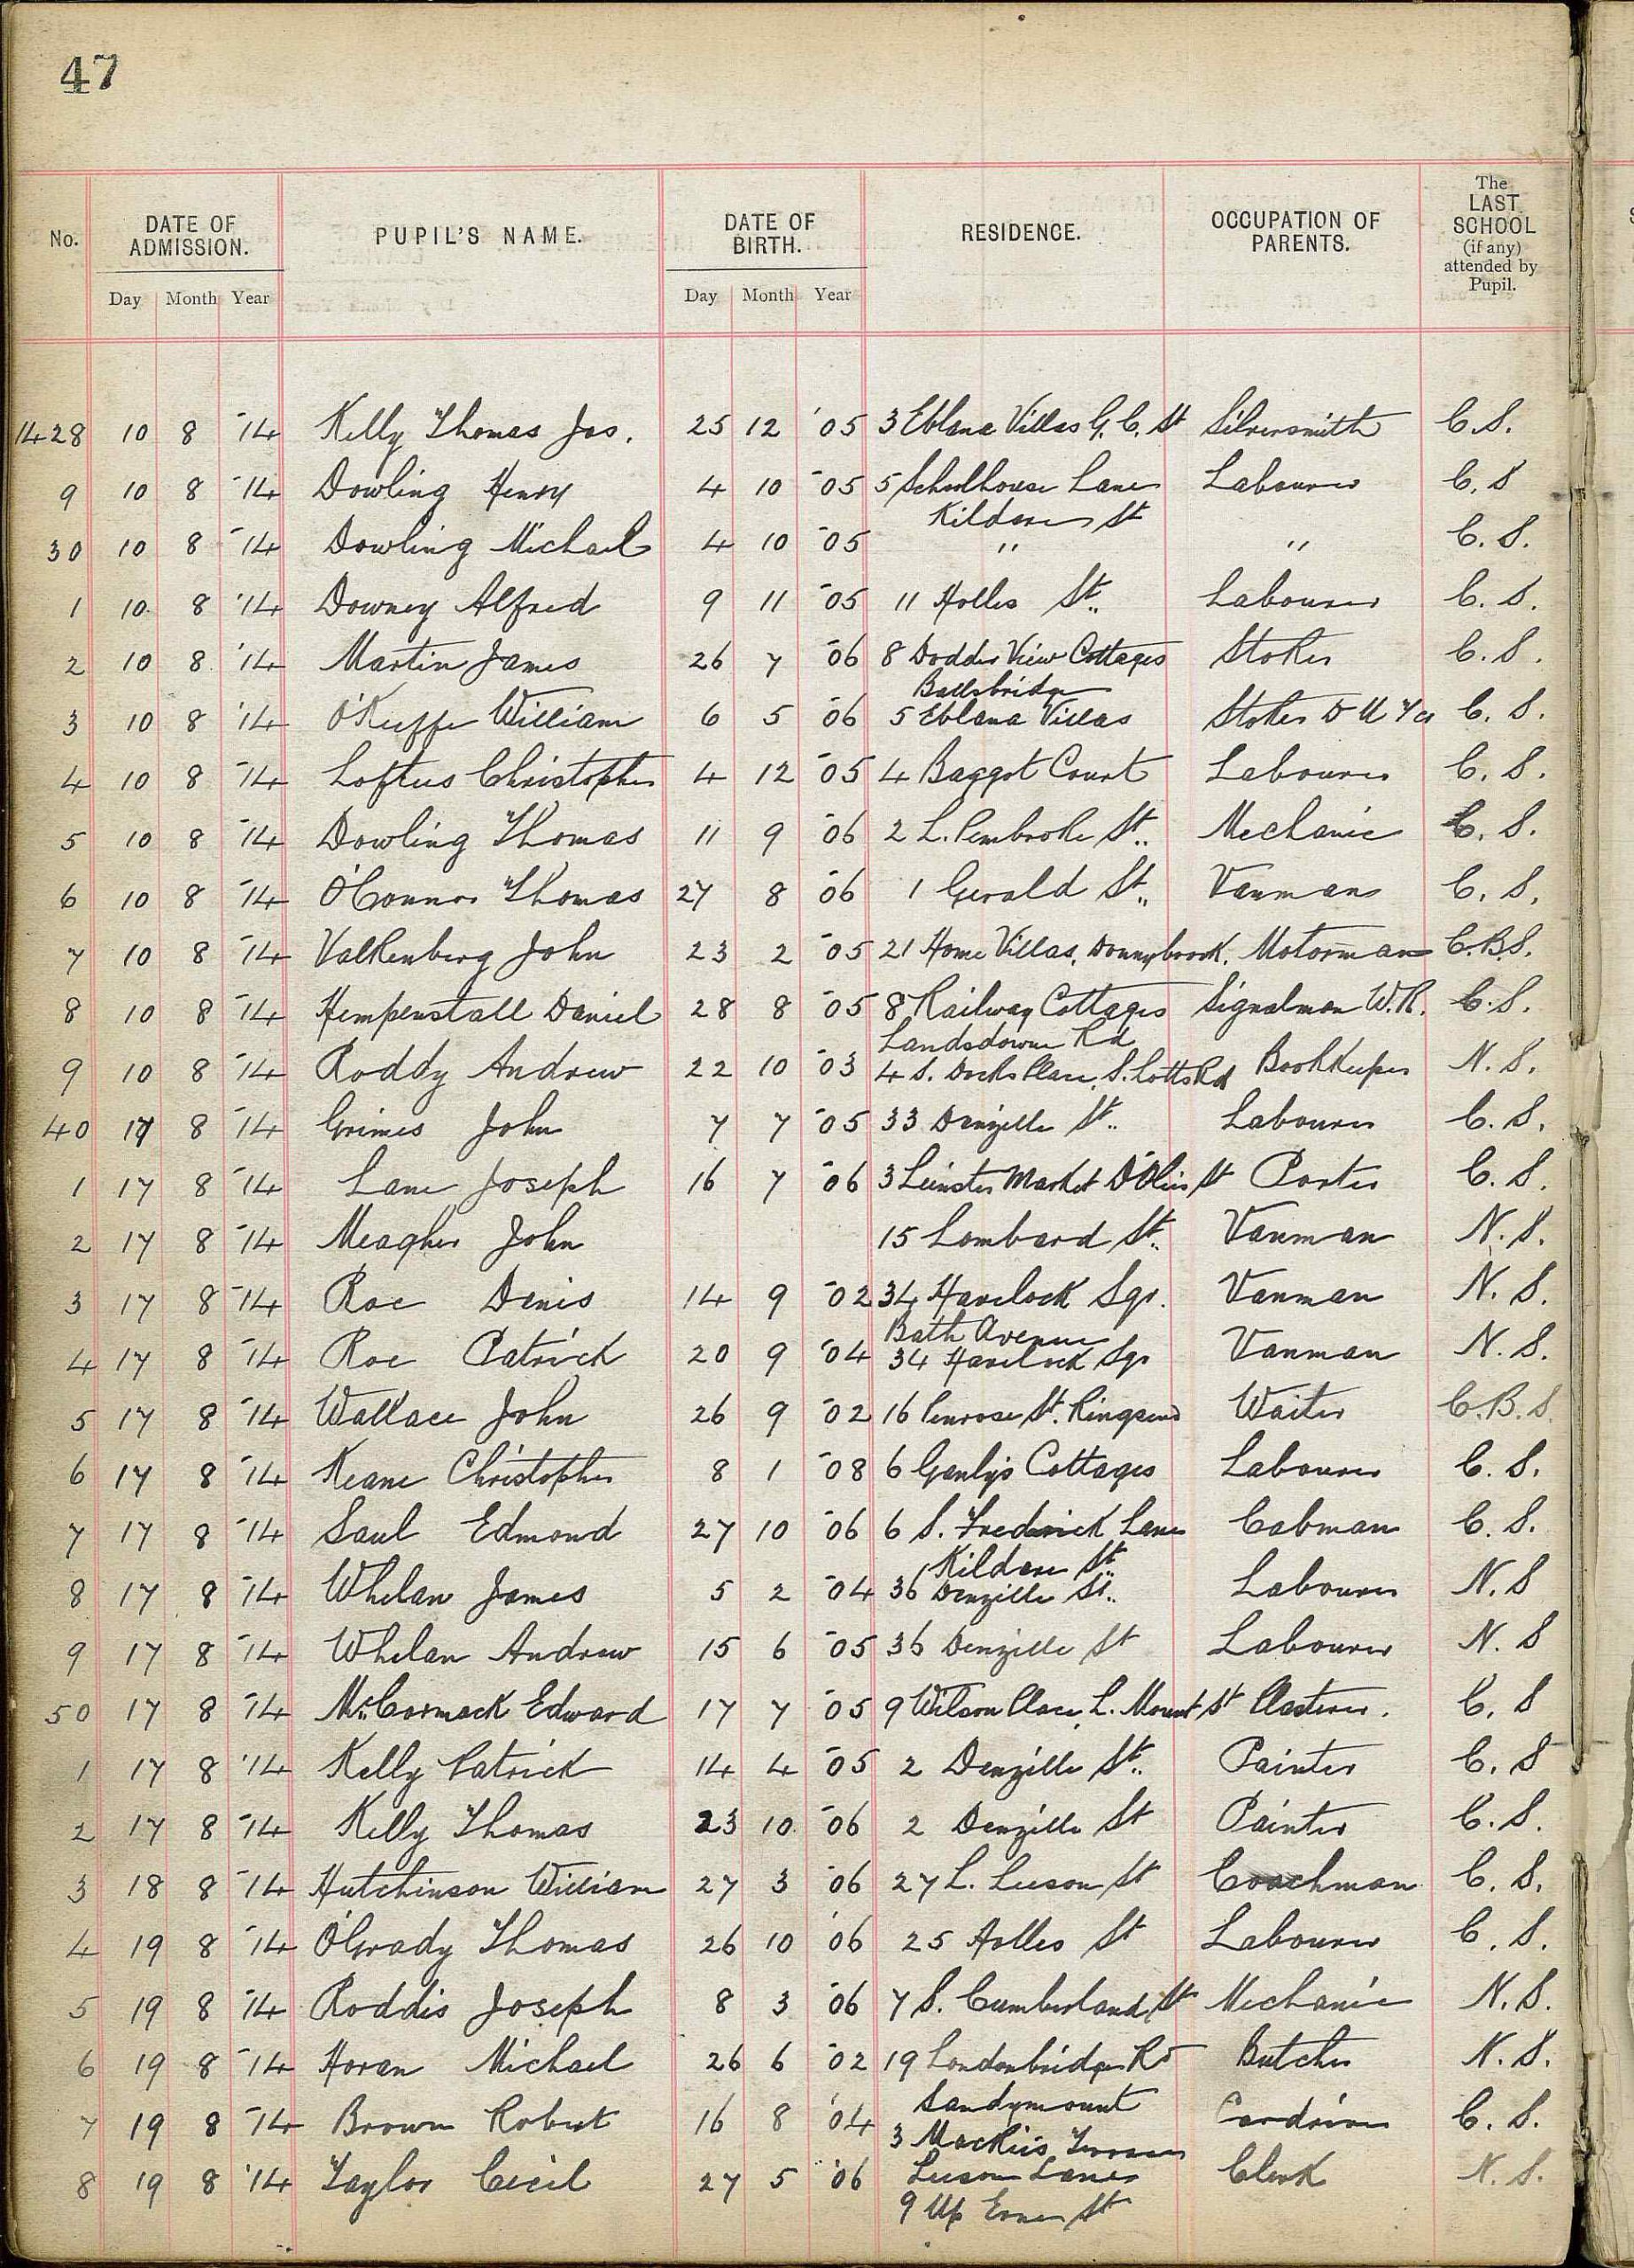 47
No. DATE OF ADMISSION. PUPIL'S NAME. DATE OF BIRTH. RESIDENCE. OCCUPATION OF PARENTS. The LAST SCHOOL (if any) attended by Pupil.
Day Month Year Day Month Year
1428 10 8 '14 Kelly Thomas Jas. 25 12 '05 3 Eblana Villas G. C. St Silversmith C.S.
9 10 8 '14 Dowling Henry 4 10 '05 5 Schoolhouse Lane Labourer C.S
Kildare St
30 10 8 '14 Dowling Michael 4 10 '05 " " C.S.
1 10 8 '14 Downey Alfred 9 11 '05 11 Holles St. Labourer C.S.
2 10 8 '14 Martin James 26 7 '06 8 Dodder View Cottages Stoker C.S.
Ballsbridge
3 10 8 '14 O'Keeffe William 6 5 '06 5 Eblana Villas Stoker D U C.S.
4 10 8 '14 Loftus Christopher 4 12 '05 4 Baggot Court Labourer C.S.
5 10 8 '14 Dowling Thomas 11 9 '06 2 L. Pembroke St. Mechanic C.S.
6 10 8 '14 O'Connor Thomas 27 8 '06 1 Gerald St. Vanman C.S.
7 10 8 '14 Valkenburg John 23 2 '05 21 Home Villas, Donnybrook. Motorman C.B.S.
8 10 8 '14 Hempenstall Daniel 28 8 '05 8 Railway Cottages Signalman W.R. C.S.
Landsdowne Rd
9 10 8 '14 Roddy Andrew 22 10 '03 4 S. Docks Place, S. Lotts Rd Bookkeeper N.S.
40 17 8 '14 Grimes John 7 7 '05 33 Denzille St. Labourer C.S.
1 17 8 '14 Lane Joseph 16 7 '06 3 Leinster Market D'Olier St Porter C.S.
2 17 8 '14 Meagher John 15 Lombard St. Vanman N.S.
3 17 8 '14 Roe Denis 14 9 '02 34 Havelock Sqr. Vanman N.S.
Bath Avenue
4 17 8 '14 Roe Patrick 20 9 '04 34 Havelock Sqr Vanman N.S.
5 17 8 '14 Wallace John 26 9 '02 16 Penrose St. Ringsend Waiter C.B.S.
6 17 8 '14 Keane Christopher 8 1 '08 6 Ganly's Cottages Labourer C.S.
7 17 8 '14 Saul Edmond 27 10 '06 6 S. Frederick Lane Cabman C.S.
Kildare St.
8 17 8 '14 Whelan James 5 2 '04 36 Denzille St. Labourer N.S
9 17 8 '14 Whelan Andrew 15 6 '05 36 Denzille St Labourer N.S
50 17 8 '14 McCormack Edward 17 7 '05 9 Wilson Place, L. Mount St Plasterer. C.S
1 17 8 '14 Kelly Patrick 14 4 '05 2 Denzille St. Painter C.S
2 17 8 '14 Kelly Thomas 23 10 '06 2 Denzille St Painter C.S.
3 18 8 '14 Hutchinson William 27 3 '06 27 L. Leeson St Coachman C.S.
4 19 8 '14 O'Grady Thomas 26 10 '06 25 Holles St Labourer C.S.
5 19 8 '14 Roddis Joseph 8 3 '06 7 S. Cumberland St Mechanic N.S.
6 19 8 '14 Horan Michael 26 6 '02 19 Londonbridge Rd Butcher N.S.
Sandymount
7 19 8 '14 Brown Robert 16 8 '04 3 Mackies Terrace Cardriver C.S.
Leeson Lane
8 19 8 '14 Taylor Cecil 27 5 '06 9 Up Erne St Clerk N.S.